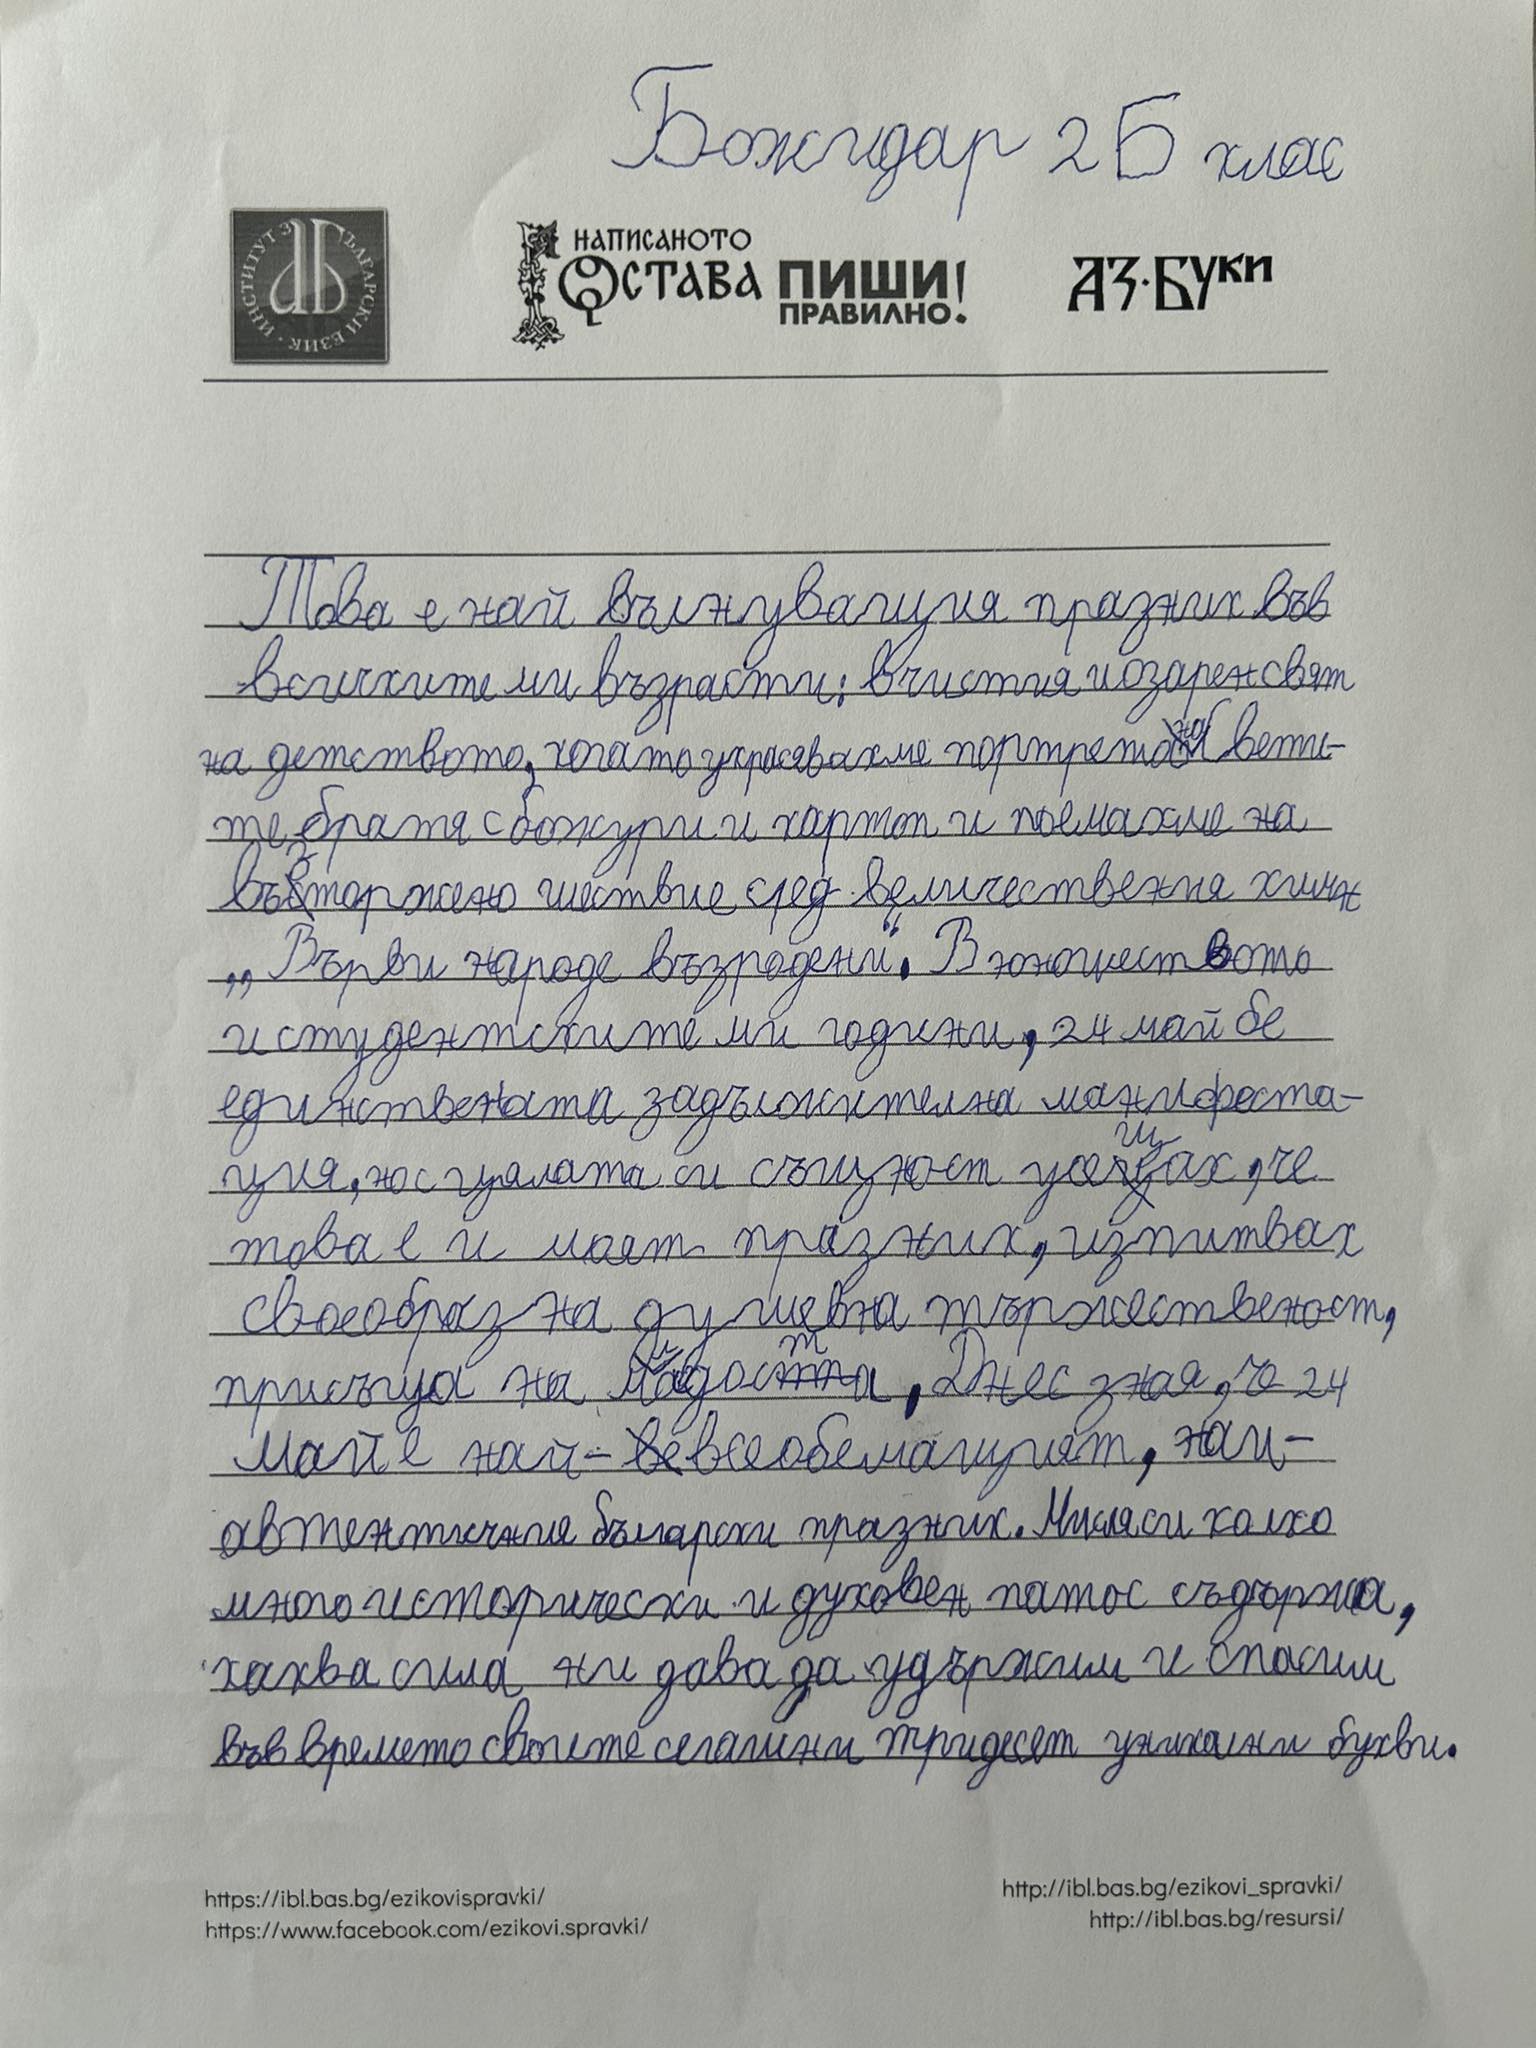 Божидар 2 Б клас
ИНСТИТУТ ЗА БЪЛГАРСКИ ЕЗИК
НАПИСАНОТО
ОСТАВА ПИШИ!
ПРАВИЛНО!
АЗ·БУКИ
Това е най вълнуващия празник във
всичките ми възрасти: в чистия и озарен свят
на детството, когато украсявахме портрета на Свети-
те братя с божури и картон и поемахме на
въвторжено шествие сред величествения химн
„Върви народе възродени". В юношеството
и студентските ми години, 24 май бе
единствената задължителна манифеста-
ция, но с цялата си същност усещах, че
това е и моят празник, изпитвах
своеобразна душевна тържественост,
присъща на младостта, Днес зная, че 24
май е най-всеобемащият, най-
автентичния български празник. Мисля си колко
много исторически и духовен патос съдържа,
каква сила ни дава да удържим и спасим
във времето своите сегашни тридесет уникални букви.
https://ibl.bas.bg/ezikovispravki/
https://www.facebook.com/ezikovi.spravki/
http://ibl.bas.bg/ezikovi_spravki/
http://ibl.bas.bg/resursi/